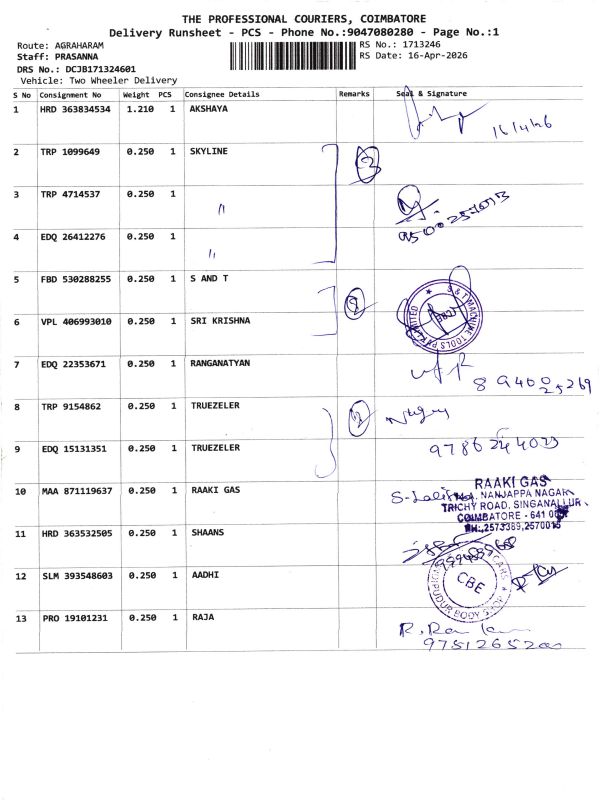 THE PROFESSIONAL COURIERS, COIMBATORE
Delivery Runsheet - PCS - Phone No.:9047080280 - Page No.:1
Route: AGRAHARAM
RS No.: 1713246
Staff: PRASANNA
RS Date: 16-Apr-2026
DRS No.: DCJB171324601
Vehicle: Two Wheeler Delivery
S No Consignment No Weight PCS Consignee Details Remarks Seal & Signature
1 HRD 363834534 1.210 1 AKSHAYA
16/4/26
2 TRP 1099649 0.250 1 SKYLINE 3
3 TRP 4714537 0.250 1 "
4 EDQ 26412276 0.250 1 "
5 FBD 530288255 0.250 1 S AND T 2
S & T MACHINE TOOLS PVT LIMITED
6 VPL 406993010 0.250 1 SRI KRISHNA
7 EDQ 22353671 0.250 1 RANGANATYAN
8 TRP 9154862 0.250 1 TRUEZELER 2
9 EDQ 15131351 0.250 1 TRUEZELER
10 MAA 871119637 0.250 1 RAAKI GAS
RAAKI GAS
NANJAPPA NAGAR
TRICHY ROAD, SINGANALLUR
COIMBATORE - 641 005
PH:,2573389,2570015
11 HRD 363532505 0.250 1 SHAANS
12 SLM 393548603 0.250 1 AADHI
CBE
BODY SHOP
13 PRO 19101231 0.250 1 RAJA